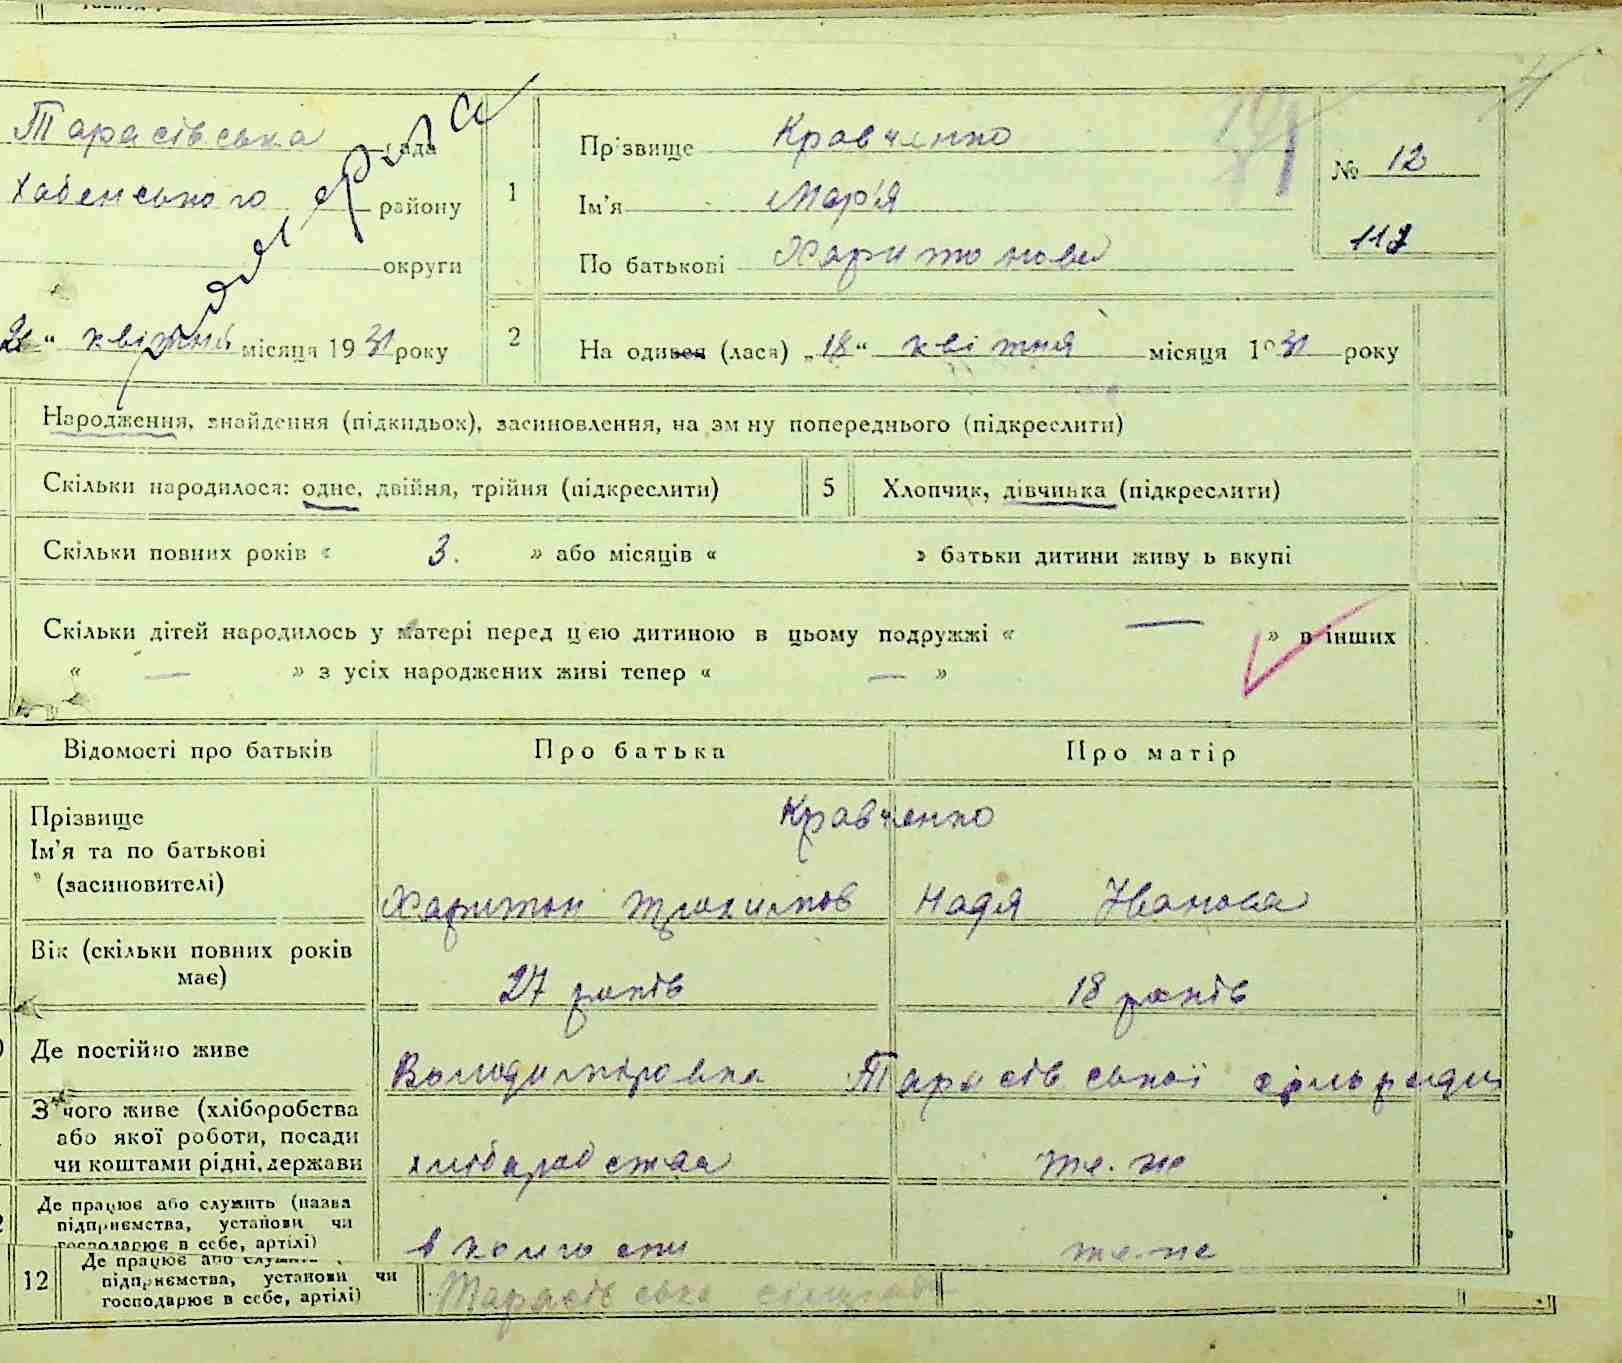 Тарасівська рада
Хабенського району
округи
" квітня місяця 1931 року
1
Прізвище Кравченко
Ім'я Мар'я
По батькові Харитонова
№ 12
117
2
На родився (лася) „18" квітня місяця 1931 року
Народження, знайдення (підкидьок), засиновлення, на зм ну попереднього (підкреслити)
Скільки народилося: одне, двійня, трійня (підкреслити)
5 Хлопчик, дівчинка (підкреслити)
Скільки повних років « 3. » або місяців « » батьки дитини живу ь вкупі
Скільки дітей народилось у матері перед цією дитиною в цьому подружжі « — » в інших
« — » з усіх народжених живі тепер « — »
Відомості про батьків Про батька Про матір
Прізвище
Кравченко
Ім'я та по батькові
" (засиновителі)
Харитон Трохимов Надя Іванова
Вік (скільки повних років має)
27 років 18 років
Де постійно живе
Володиміровка Тарасівської сільради
З чого живе (хліборобства
або якої роботи, посади
чи коштами рідні, держави
хліборобства те-же
Де працює або служить (назва
підприємства, установи чи
господарює в себе, артілі)
в колгоспи те-же
12
Де працює або служить
підприємства, установи чи
господарює в себе, артілі)
Тарасівська